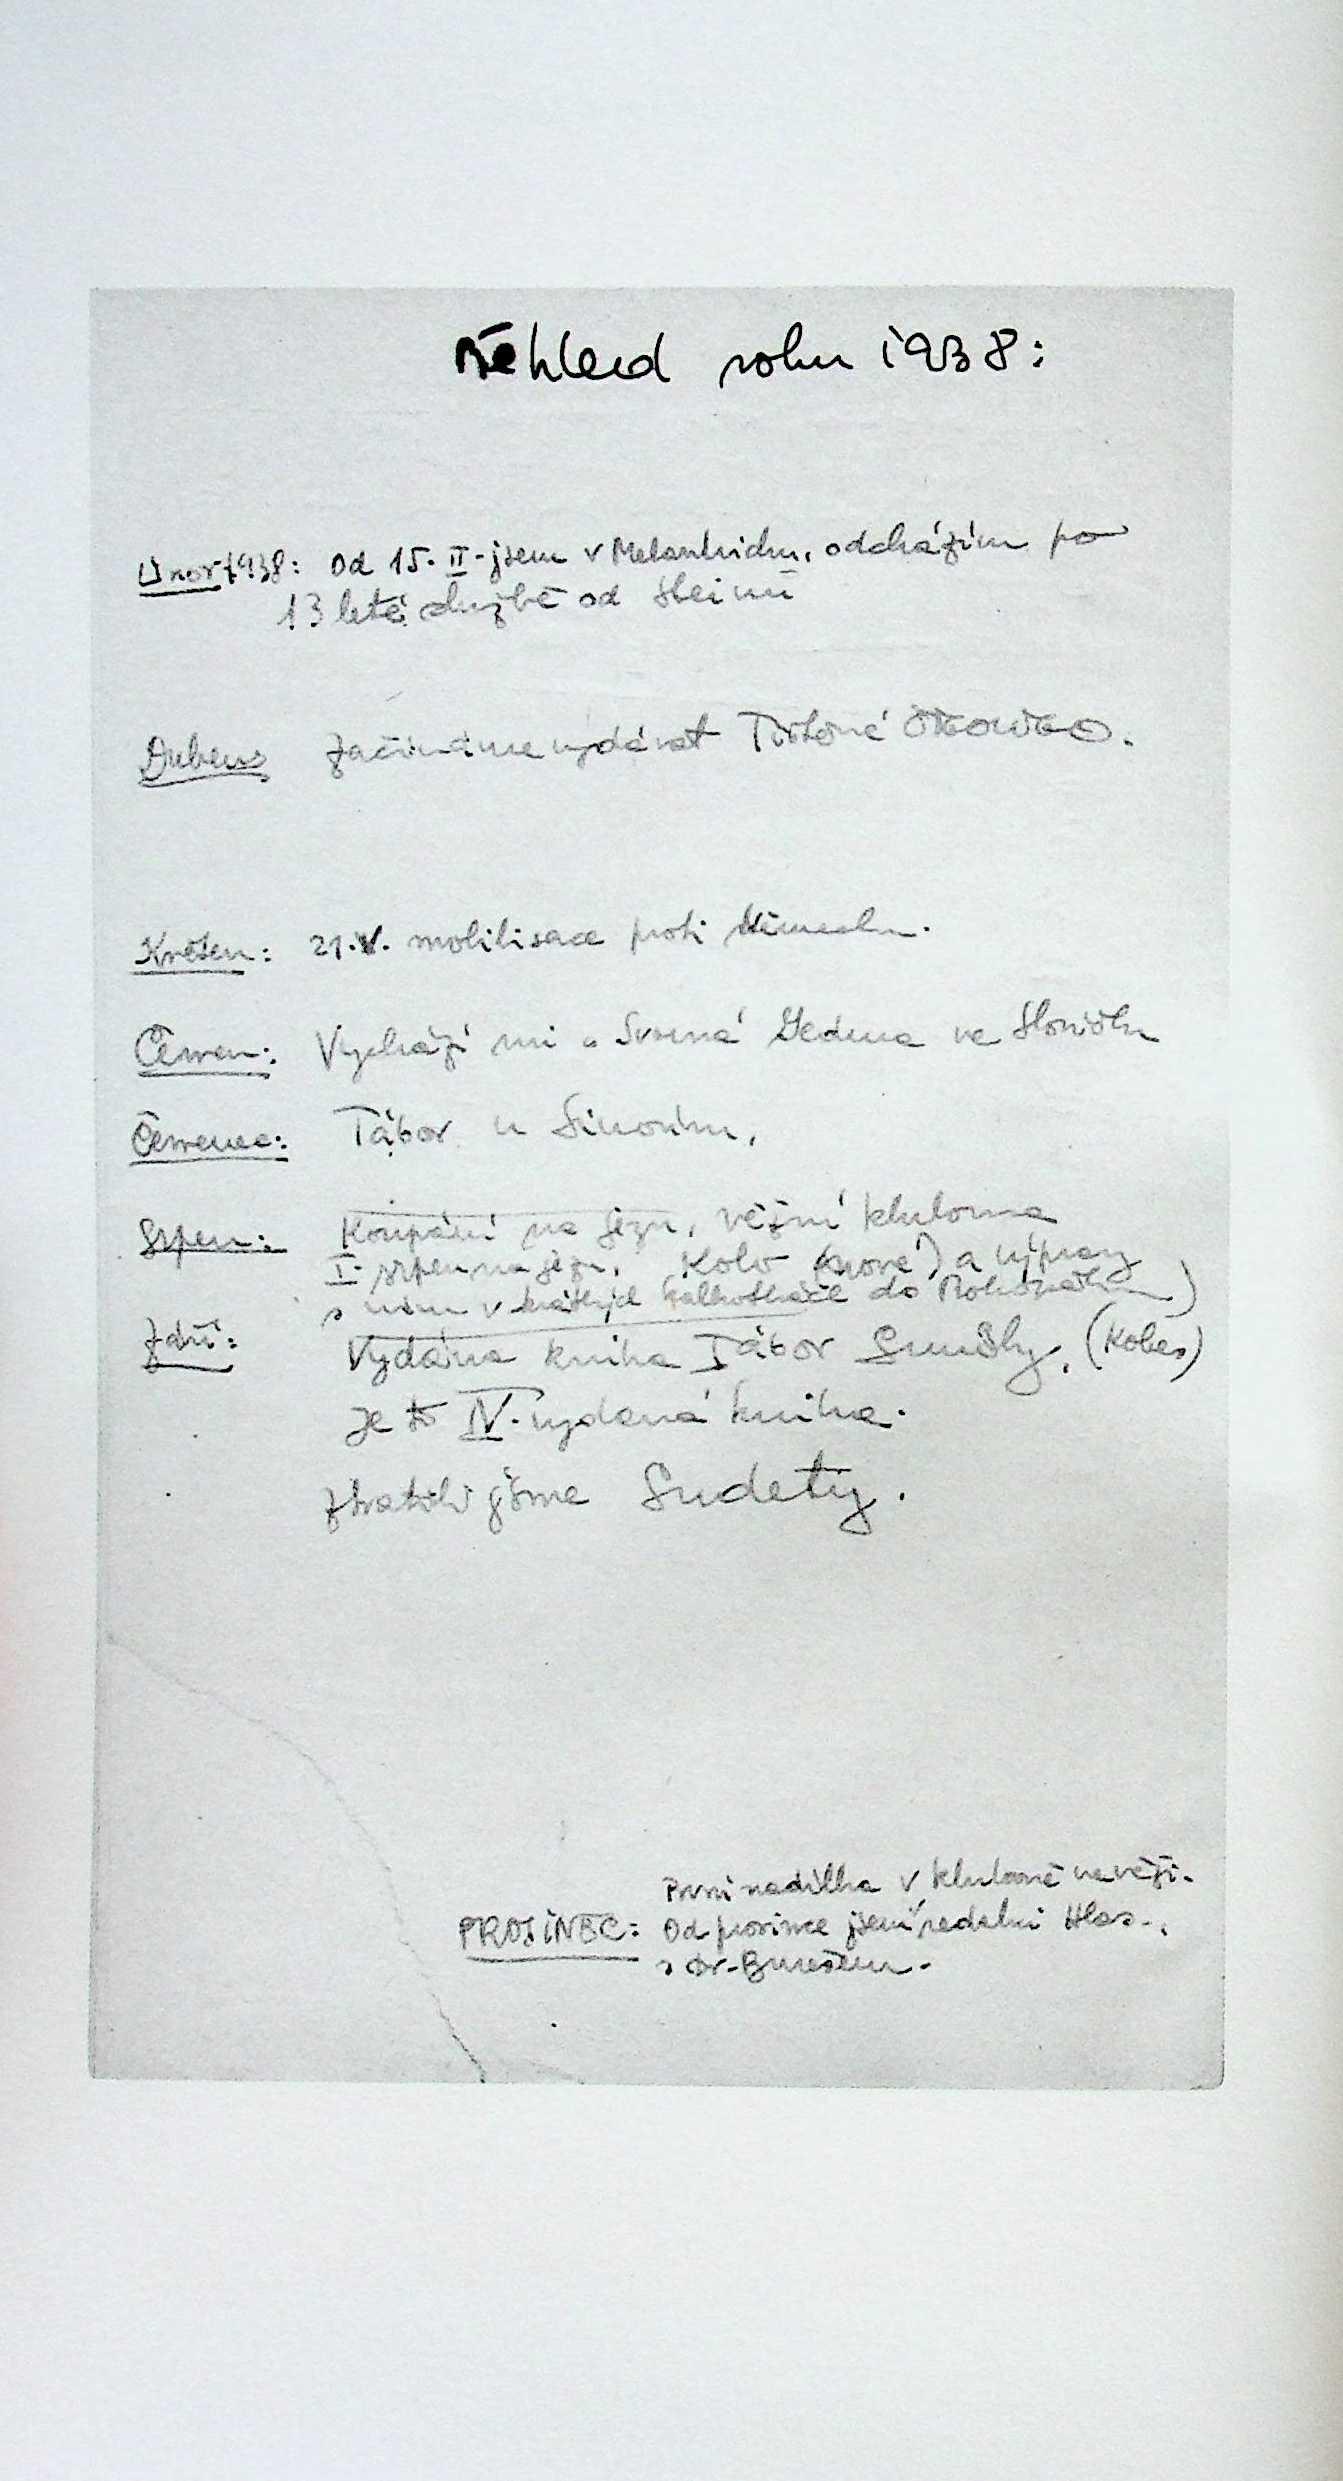 Přehled roku 1938:
Únor 1938: Od 15. II. jsem v Melantrichu, odcházím po
13 leté službě od Steinů
Duben začínáme vydávat Tištěné
Květen: 21. V. mobilisace proti Německu.
Červen: Vychází mi Svorná Sedma ve Sluníčku
Červenec: Tábor u
Srpen: Koupání na jezu, věžní klubovna
I. srpen na jezu. Kolo (nové) a výpravy
s ním v krátkých kalhotkách do Rokošáku)
Září: Vydána kniha Tábor Smůly. (Kobes)
je to IV. vydaná kniha.
ztratili jsme Sudety.
První nadílka v klubovně na věži.
PROSINEC: Od prosince jsem v redakci Hlas.,
s Dr. Burešem.